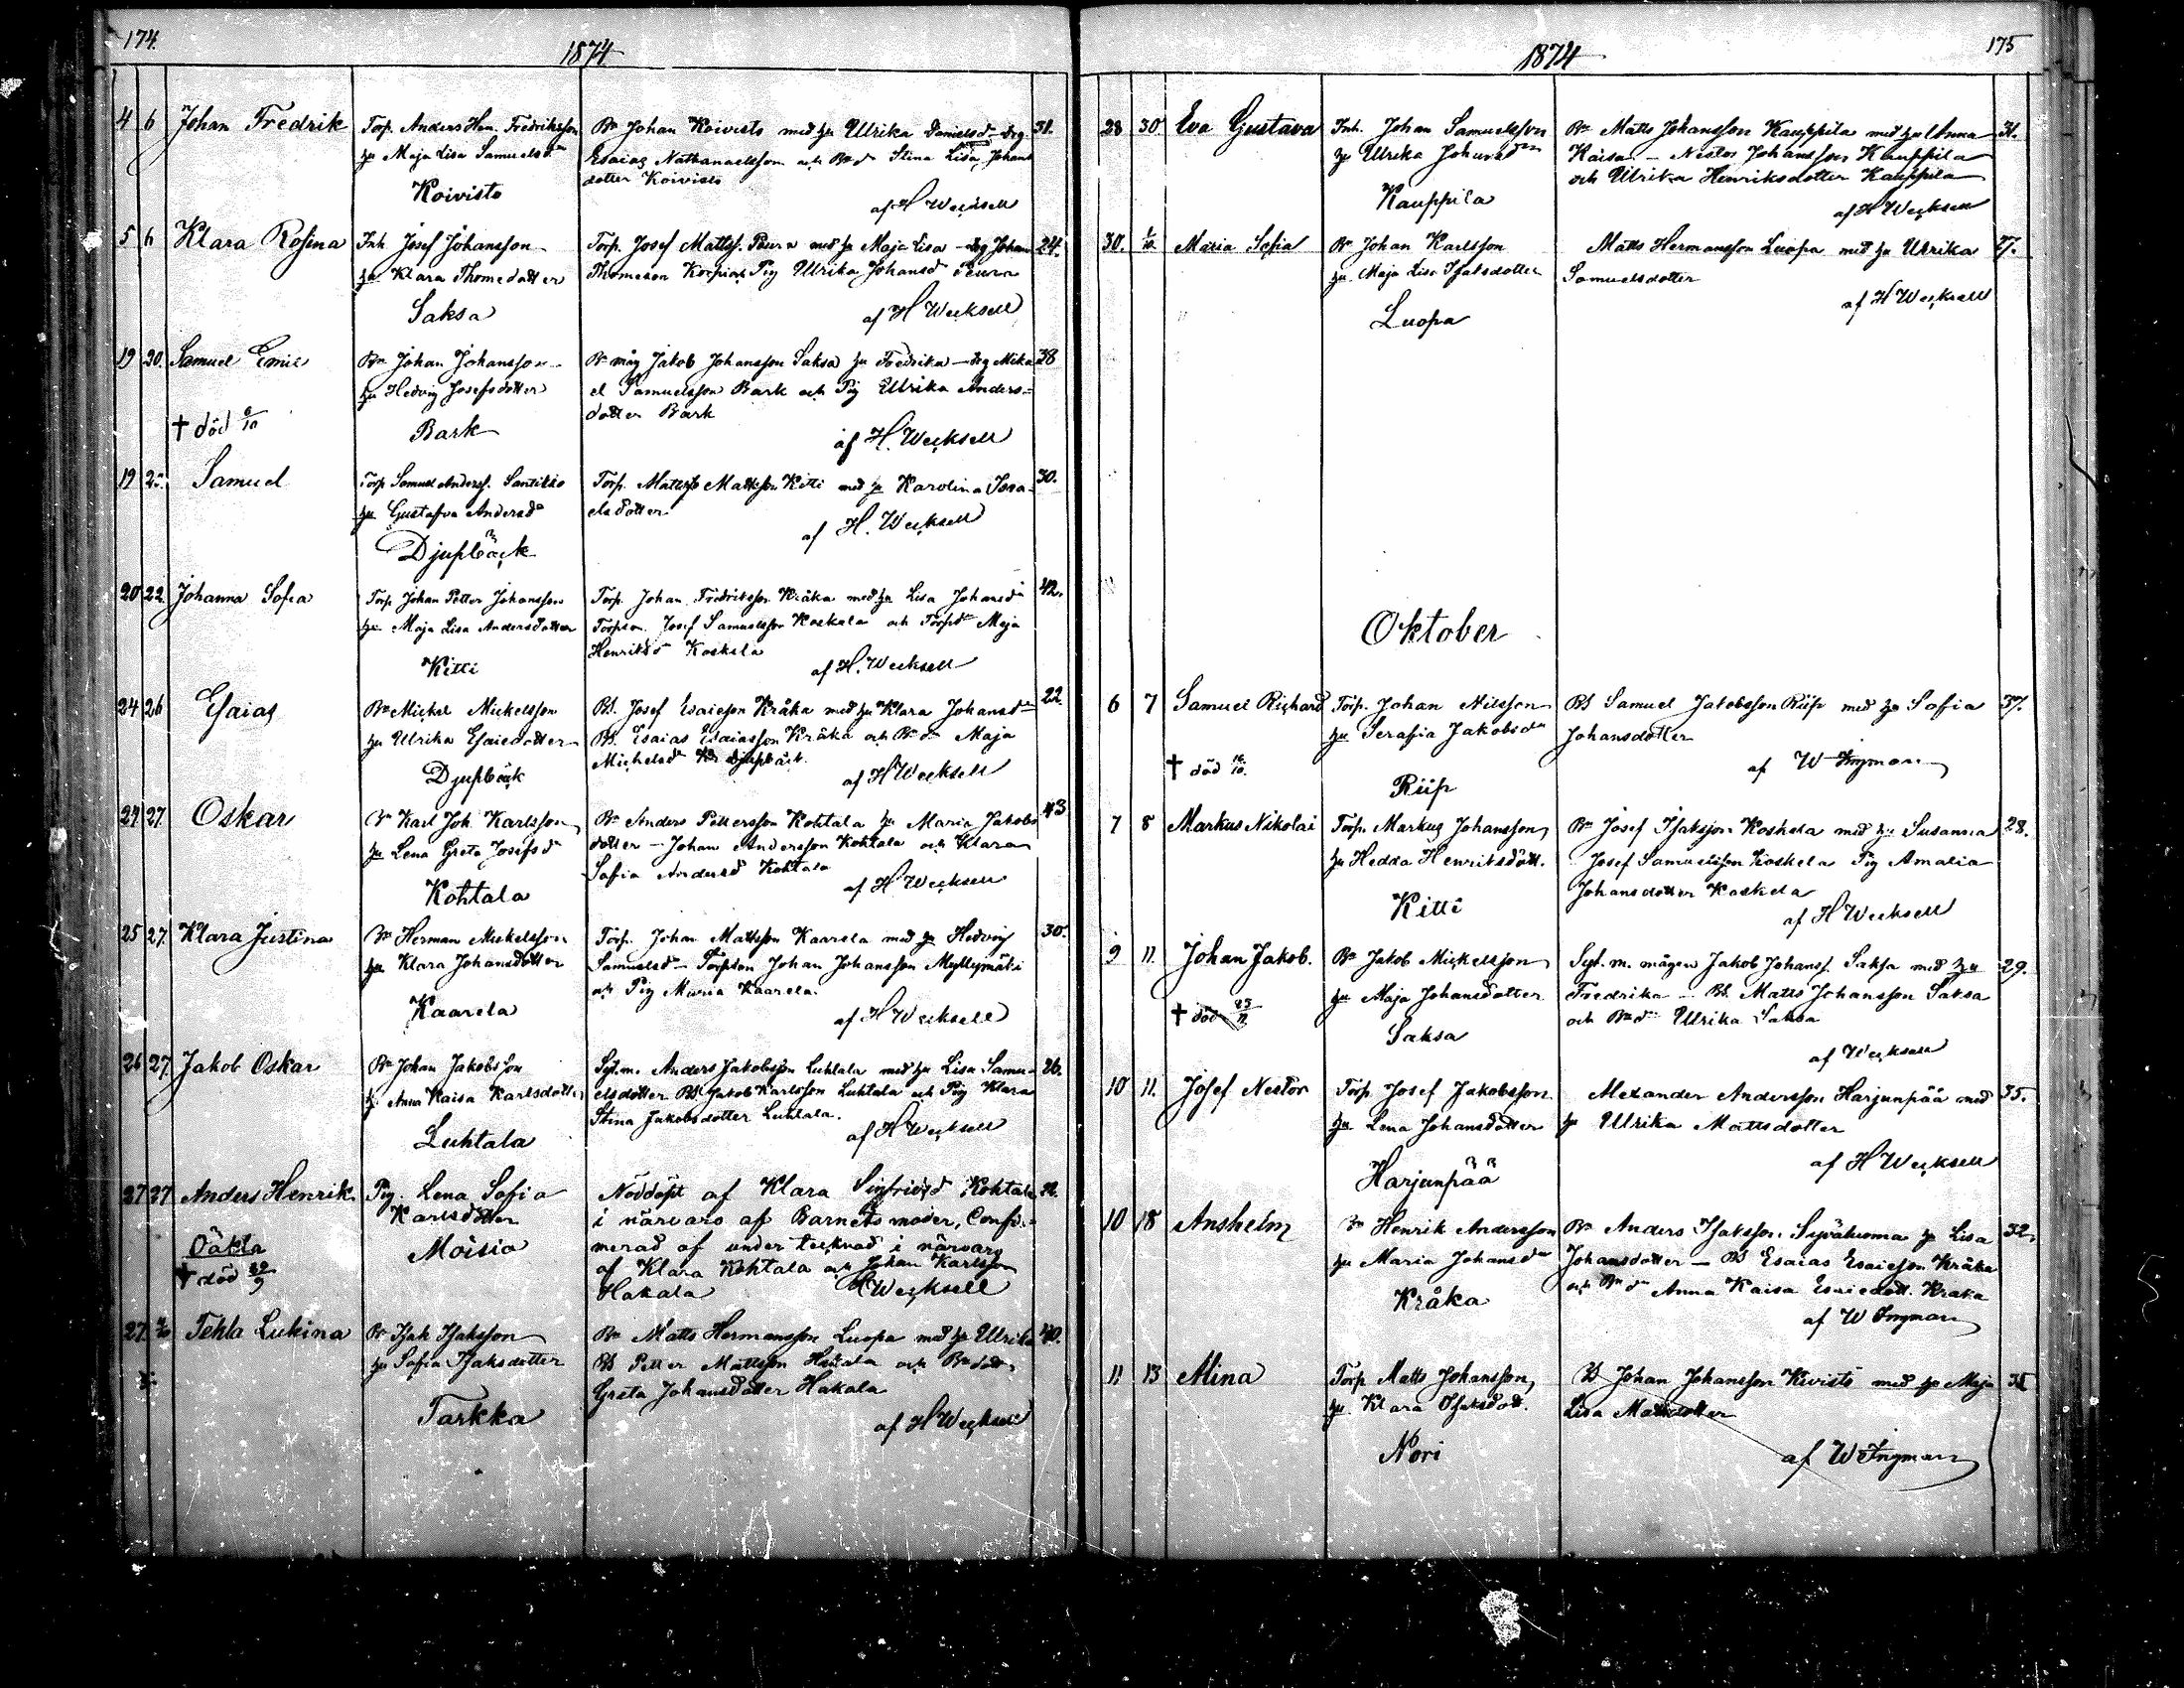 174.
1874
4 6 Johan Fredrik Torp. Anders Hen. Fredriksson Bn Johan Koivisto med hu Ulrika Danielsd - Drg 31.
hu Maja Lisa Samuelsdr Esaias Nathanaelsson och Bnd Stina Lisa Johans
Koivisto dotter Koivisto
af H Wecksell
5 6 Klara Rosina Inh. Josef Johansson Torp. Josef Mattss. Peura med hu Maja Lisa - drg Johan 24.
hu Klara Thomedotter Thomeson Korpi och Pig Ulrika Johansd Peura
Saksa af H Wecksell
19 20. Samuel Emil Bn Johan Johansson Bn måg Jakob Johansson Saksa hu Fredrika - drg Mika 38
hu Hedvig Josefsdotter el Samuelsson Bark och Pig Ulrika Anders=
† död 6/10 Bark dotter Bark
af H. Wecksell
19 25. Samuel Torp Samuel Anderss. Santikko Torp. Matts Mattsson Kitti med hu Karolina Isra- 30.
hu Gustafva Andersdr elsdotter
Djupbäck af H. Wecksell
20 22 Johanna Sofia Torp. Johan Petter Johansson Torp. Johan Fredriksson Kråka med hu Lisa Johansdr 42.
hu Maja Lisa Andersdotter Torpson Josef Samuelsson Koskela och Torpdr Maja
Kitti Henriksdr Koskela
af H. Wecksell
24 26 Esaias Bn Michel Mickelsson BS. Josef Esaieson Kråka med hu Klara Johansdr 22.
hu Ulrika Esaiedotter BS. Esaias Esaiasson Kråka och Bnd Maja
Djupbäck Michelsdr Djupbäck.
af H Wecksell
24 27. Oskar Bn Karl Joh. Karlsson Bn Anders Pettersson Kohtala hu Maria Jakobs 43
hu Lena Greta Josefsd dotter - Johan Andersson Kohtala och Klara
Kohtala Sofia Andersd Kohtala
af H Wecksell
25 27. Klara Justina Bn Herman Mickelsson Torp. Johan Mattsson Kaarela med hu Hedvig 30.
hu Klara Johansdotter Samuelsdr - Torpson Johan Johansson Myllymäki
Kaarela och Pig Maria Kaarela.
af H Wecksell
26 27. Jakob Oskar Bn Johan Jakobsson Syt.m. Anders Jakobsson Luhtala med hu Lisa Samu- 26.
h. Anna Kaisa Karlsdotter elsdotter BS. Jakob Karlsson Luhtala och Pig Klara
Luhtala Stina Jakobsdotter Luhtala.
af H Wecksell
27 27 Anders Henrik Pig. Lena Sofia Nöddöpt af Klara Sigfridsd Kohtala
Karlsdotter i närvaro af Barnets moder, Confir-
Oäkta Moisio merad af undertecknad i närvaro
† död 29/9 af Klara Kohtala och Johan Karlsson
Hakala H Wecksell
27. Tekla Lukina Bn Isak Isaksson Bn Matts Hermansson Luopa med hu Ulrika 40.
hu Sofia Isaksdotter BS Petter Mattsson Hakala och Bndott
Tarkka Greta Johansdotter Hakala
af H Wecksell
1874
175
28 30. Eva Gustava Inh. Johan Samuelsson Bn Matts Johansson Kauppila med hu Anna 31.
hu Ulrika Johansdr Kaisa - Nestor Johansson Kauppila
Kauppila och Ulrika Henriksdotter Kauppila
af H Wecksell
30. 1/10 Maria Sofia Bn Johan Karlsson Matts Hermansson Luopa med hu Ulrika 27.
hu Maja Lisa Isaksdotter Samuelsdotter
Luopa af H Wecksell
Oktober
6 7 Samuel Richard Torp. Johan Nilsson BS Samuel Jakobsson Riip med hu Sofia 37.
hu Serafia Jakobsdr Johansdotter
† död 16/10. Riip af W Ingman
7 8 Markus Nikolai Torp. Markus Johansson Bn Josef Isaksson Koskela med hu Susanna 28.
hu Hedda Henriksdott. Josef Samuelsson Koskela Pig Amalia
Kitti Johansdotter Koskela
af H Wecksell
9 11. Johan Jakob. Bn Jakob Mickelsson Syt. m. mågen Jakob Johanss. Saksa med hu 29.
hu Maja Johansdotter Fredrika - BS. Matts Johansson Saksa
† död 23/11 Saksa och Bnd Ulrika Saksa
af Wecksell
10 11. Josef Nestor Torp. Josef Jakobsson Alexander Andersson Harjunpää med 35.
hu Lena Johansdotter hu Ulrika Mattsdotter
Harjunpää af H Wecksell
10 18 Anshelm Bn Henrik Andersson Bn Anders Isaksson Syväluoma hu Lisa 32.
hu Maria Johansdr Johansdotter - BS Esaias Esaieson Kråka
Kråka och Bnd Anna Kaisa Esaiedott. Kråka
af W Ingman
11 13 Mina Torp Matts Johansson BS Johan Johansson Kivistö med hu Maja
hu Klara Isaksdott. Lisa Mattsdotter
Nori af W Ingman